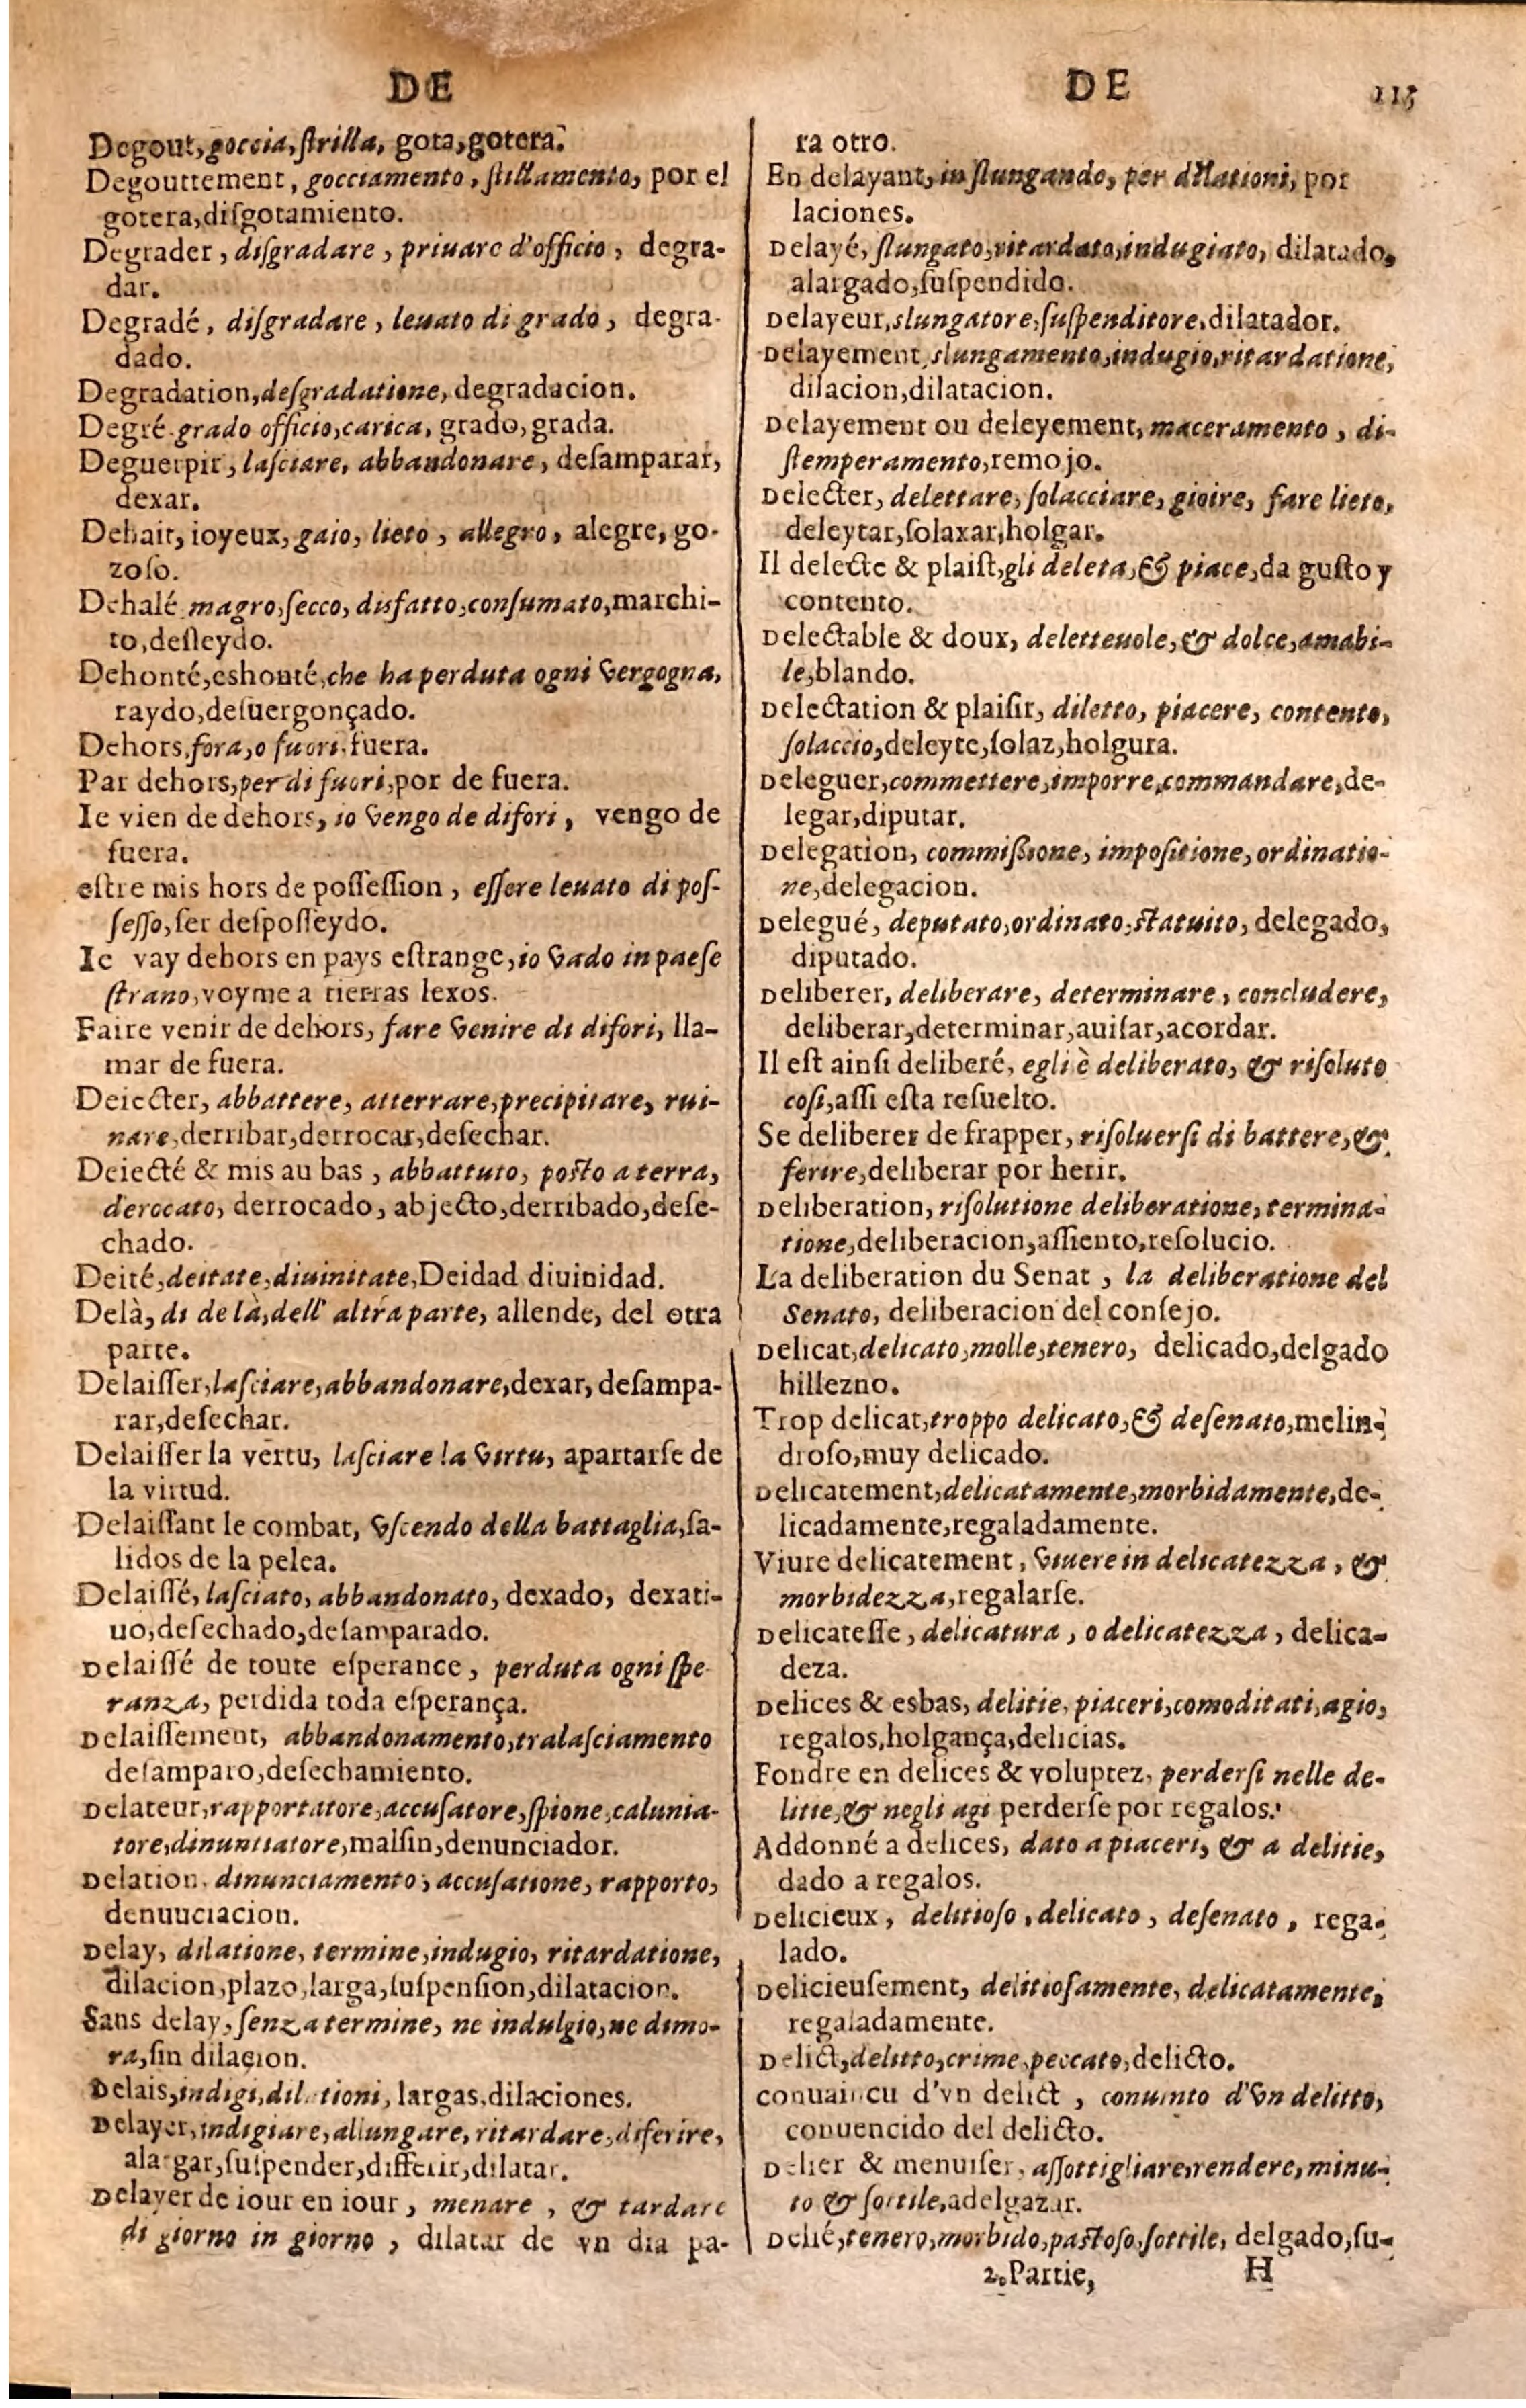 DE
Degout, goccia, strilla, gota, gotera.
Degouttement, gocciamento, stillamento, por el
gotera, disgotamiento.
Degrader, disgradare, priuare d'officio, degra-
dar.
Degradé, disgradare, leuato di grado, degra-
dado.
Degradation, desgradatione, degradacion.
Degré grado officio, carica, grado, grada.
Deguerpir, lasciare, abbandonare, desamparar,
dexar.
Dehait, ioyeux, gaio, lieto, allegro, alegre, go-
zoso.
Dehalé magro, secco, disfatto, consumato, marchi-
to, desleydo.
Dehonté, eshonté, che ha perduta ogni vergogna,
raydo, desuergonçado.
Dehors, fora, o fuori. fuera.
Par dehors, per di fuori, por de fuera.
Ie vien de dehors, io vengo de difori, vengo de
fuera.
estre mis hors de possession, essere leuato di pos-
sesso, ser desposseydo.
Ie vay dehors en pays estrange, io vado in paese
strano, voyme a tierras lexos.
Faire venir de dehors, fare venire di difori, lla-
mar de fuera.
Deiecter, abbattere, atterrare, precipitare, rui-
nare, derribar, derrocar, desechar.
Deiecté & mis au bas, abbattuto, posto a terra,
derocato, derrocado, abjecto, derribado, dese-
chado.
Deité, deitate, diuinitate, Deidad diuinidad.
Delà, di de là, dell' altra parte, allende, del otra
parte.
Delaisser, lasciare, abbandonare, dexar, desampa-
rar, desechar.
Delaisser la vertu, lasciare la virtu, apartarse de
la virtud.
Delaissant le combat, vscendo della battaglia, sa-
lidos de la pelea.
Delaissé, lasciato, abbandonato, dexado, dexati-
uo, desechado, desamparado.
Delaissé de toute esperance, perduta ogni spe-
ranza, perdida toda esperança.
Delaissement, abbandonamento, tralasciamento
desamparo, desechamiento.
Delateur, rapportatore, accusatore, spione, calunia-
tore, dinuntiatore, malsin, denunciador.
Delation, dinunciamento, accusatione, rapporto,
denuuciacion.
Delay, dilatione, termine, indugio, ritardatione,
dilacion, plazo, larga, suspension, dilatacion.
Sans delay, senza termine, ne indulgio, ne dimo-
ra, sin dilacion.
Delais, indigi, dilationi, largas, dilaciones.
Delayer, indigiare, allungare, ritardare, diferire,
alargar, suspender, differir, dilatar.
Delayer de iour en iour, menare, & tardare
di giorno in giorno, dilatar de vn dia pa-
DE 115
ra otro.
En delayant, in slungando, per dilationi, por
laciones.
Delayé, slungato, ritardato, indugiato, dilatado,
alargado, suspendido.
Delayeur, slungatore, suspenditore, dilatador.
Delayement slungamento, indugio, ritardatione,
dilacion, dilatacion.
Delayement ou deleyement, maceramento, di-
stemperamento, remojo.
Delecter, delettare, solacciare, gioire, fare lieto,
deleytar, solaxar, holgar.
Il delecte & plaist, gli deleta, & piace, da gusto y
contento.
Delectable & doux, deletteuole, & dolce, amabi-
le, blando.
Delectation & plaisir, diletto, piacere, contento,
solaccio, deleyte, solaz, holgura.
Deleguer, commettere, imporre, commandare, de-
legar, diputar.
Delegation, commissione, impositione, ordinatio-
ne, delegacion.
Delegué, deputato, ordinato, statuito, delegado,
diputado.
Deliberer, deliberare, determinare, concludere,
deliberar, determinar, auisar, acordar.
Il est ainsi deliberé, egli è deliberato, & risoluto
cosi, assi esta resuelto.
Se deliberer de frapper, risoluersi di battere, &
ferire, deliberar por herir.
Deliberation, risolutione deliberatione, termina-
tione, deliberacion, assiento, resolucio.
La deliberation du Senat, la deliberatione del
Senato, deliberacion del consejo.
Delicat, delicato, molle, tenero, delicado, delgado
hillezno.
Trop delicat, troppo delicato, & desenato, melin-
droso, muy delicado.
Delicatement, delicatamente, morbidamente, de-
licadamente, regaladamente.
Viure delicatement, viuere in delicatezza, &
morbidezza, regalarse.
Delicatesse, delicatura, o delicatezza, delica-
deza.
Delices & esbas, delitie, piaceri, comoditati, agio,
regalos, holgança, delicias.
Fondre en delices & voluptez, perdersi nelle de-
litie, & negli agi perderse por regalos.
Addonné a delices, dato a piaceri, & a delitie,
dado a regalos.
Delicieux, delitioso, delicato, desenato, rega-
lado.
Delicieusement, delitiosamente, delicatamente,
regaladamente.
Delict, delitto, crime, peccato, delicto.
conuaincu d'vn delict, conuinto d'vn delitto,
conuencido del delicto.
Delier & menuiser, assottigliare, rendere, minu-
to & sottile, adelgazar.
Delié, tenero, morbido, pastoso, sottile, delgado, su-
2. Partie, H